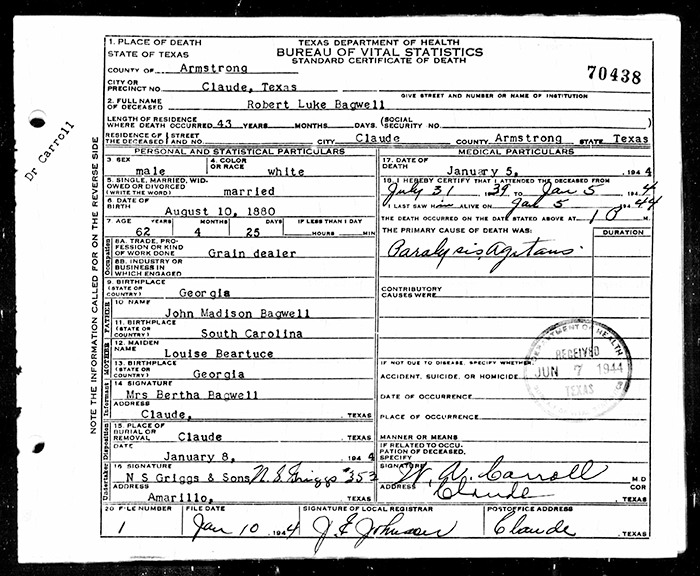 1. PLACE OF DEATH
STATE OF TEXAS
TEXAS DEPARTMENT OF HEALTH
BUREAU OF VITAL STATISTICS
STANDARD CERTIFICATE OF DEATH
COUNTY OF Armstrong
70438
CITY OR PRECINCT NO. Claude, Texas
GIVE STREET AND NUMBER OR NAME OF INSTITUTION
2. FULL NAME OF DECEASED Robert Luke Bagwell
LENGTH OF RESIDENCE WHERE DEATH OCCURRED 43 YEARS MONTHS DAYS (SOCIAL SECURITY NO.
RESIDENCE OF THE DECEASED STREET AND NO. CITY Claude COUNTY Armstrong STATE Texas
PERSONAL AND STATISTICAL PARTICULARS
3. SEX male
4. COLOR OR RACE white
5. SINGLE, MARRIED, WIDOWED OR DIVORCED (WRITE THE WORD) married
6. DATE OF BIRTH August 10, 1880
7. AGE YEARS MONTHS DAYS IF LESS THAN 1 DAY
62 4 25 HOURS MIN
Occupation
8A. TRADE, PROFESSION OR KIND OF WORK DONE Grain dealer
8B. INDUSTRY OR BUSINESS IN WHICH ENGAGED
9. BIRTHPLACE (STATE OR COUNTRY) Georgia
FATHER
10 NAME John Madison Bagwell
11. BIRTHPLACE (STATE OR COUNTRY) South Carolina
MOTHER
12. MAIDEN NAME Louise Beartuce
13. BIRTHPLACE (STATE OR COUNTRY) Georgia
Informant
14 SIGNATURE Mrs Bertha Bagwell
ADDRESS Claude, TEXAS
Disposition
15. PLACE OF BURIAL OR REMOVAL Claude TEXAS
DATE January 8, 1944
Undertaker
16 SIGNATURE N S Griggs & Sons N. S. Griggs #353
ADDRESS Amarillo, TEXAS
MEDICAL PARTICULARS
17. DATE OF DEATH January 5, 1944
18. I HEREBY CERTIFY THAT I ATTENDED THE DECEASED FROM
July 31 1939 TO Jan 5 1944
I LAST SAW him ALIVE ON Jan 5 1944
THE DEATH OCCURRED ON THE DATE STATED ABOVE AT 1 P M.
THE PRIMARY CAUSE OF DEATH WAS:
DURATION
Paralysis Agitans
CONTRIBUTORY CAUSES WERE
IF NOT DUE TO DISEASE, SPECIFY WHETHER
ACCIDENT, SUICIDE, OR HOMICIDE
DATE OF OCCURRENCE
PLACE OF OCCURRENCE
MANNER OR MEANS
IF RELATED TO OCCUPATION OF DECEASED, SPECIFY
SIGNATURE W. A. Carroll M D
ADDRESS Claude COR
DEPARTMENT OF HEALTH
RECEIVED
JUN 7 1944
TEXAS
20 FILE NUMBER 1
FILE DATE Jan 10 1944
SIGNATURE OF LOCAL REGISTRAR J E Johnson
POSTOFFICE ADDRESS Claude, TEXAS
Dr Carroll
NOTE THE INFORMATION CALLED FOR ON THE REVERSE SIDE